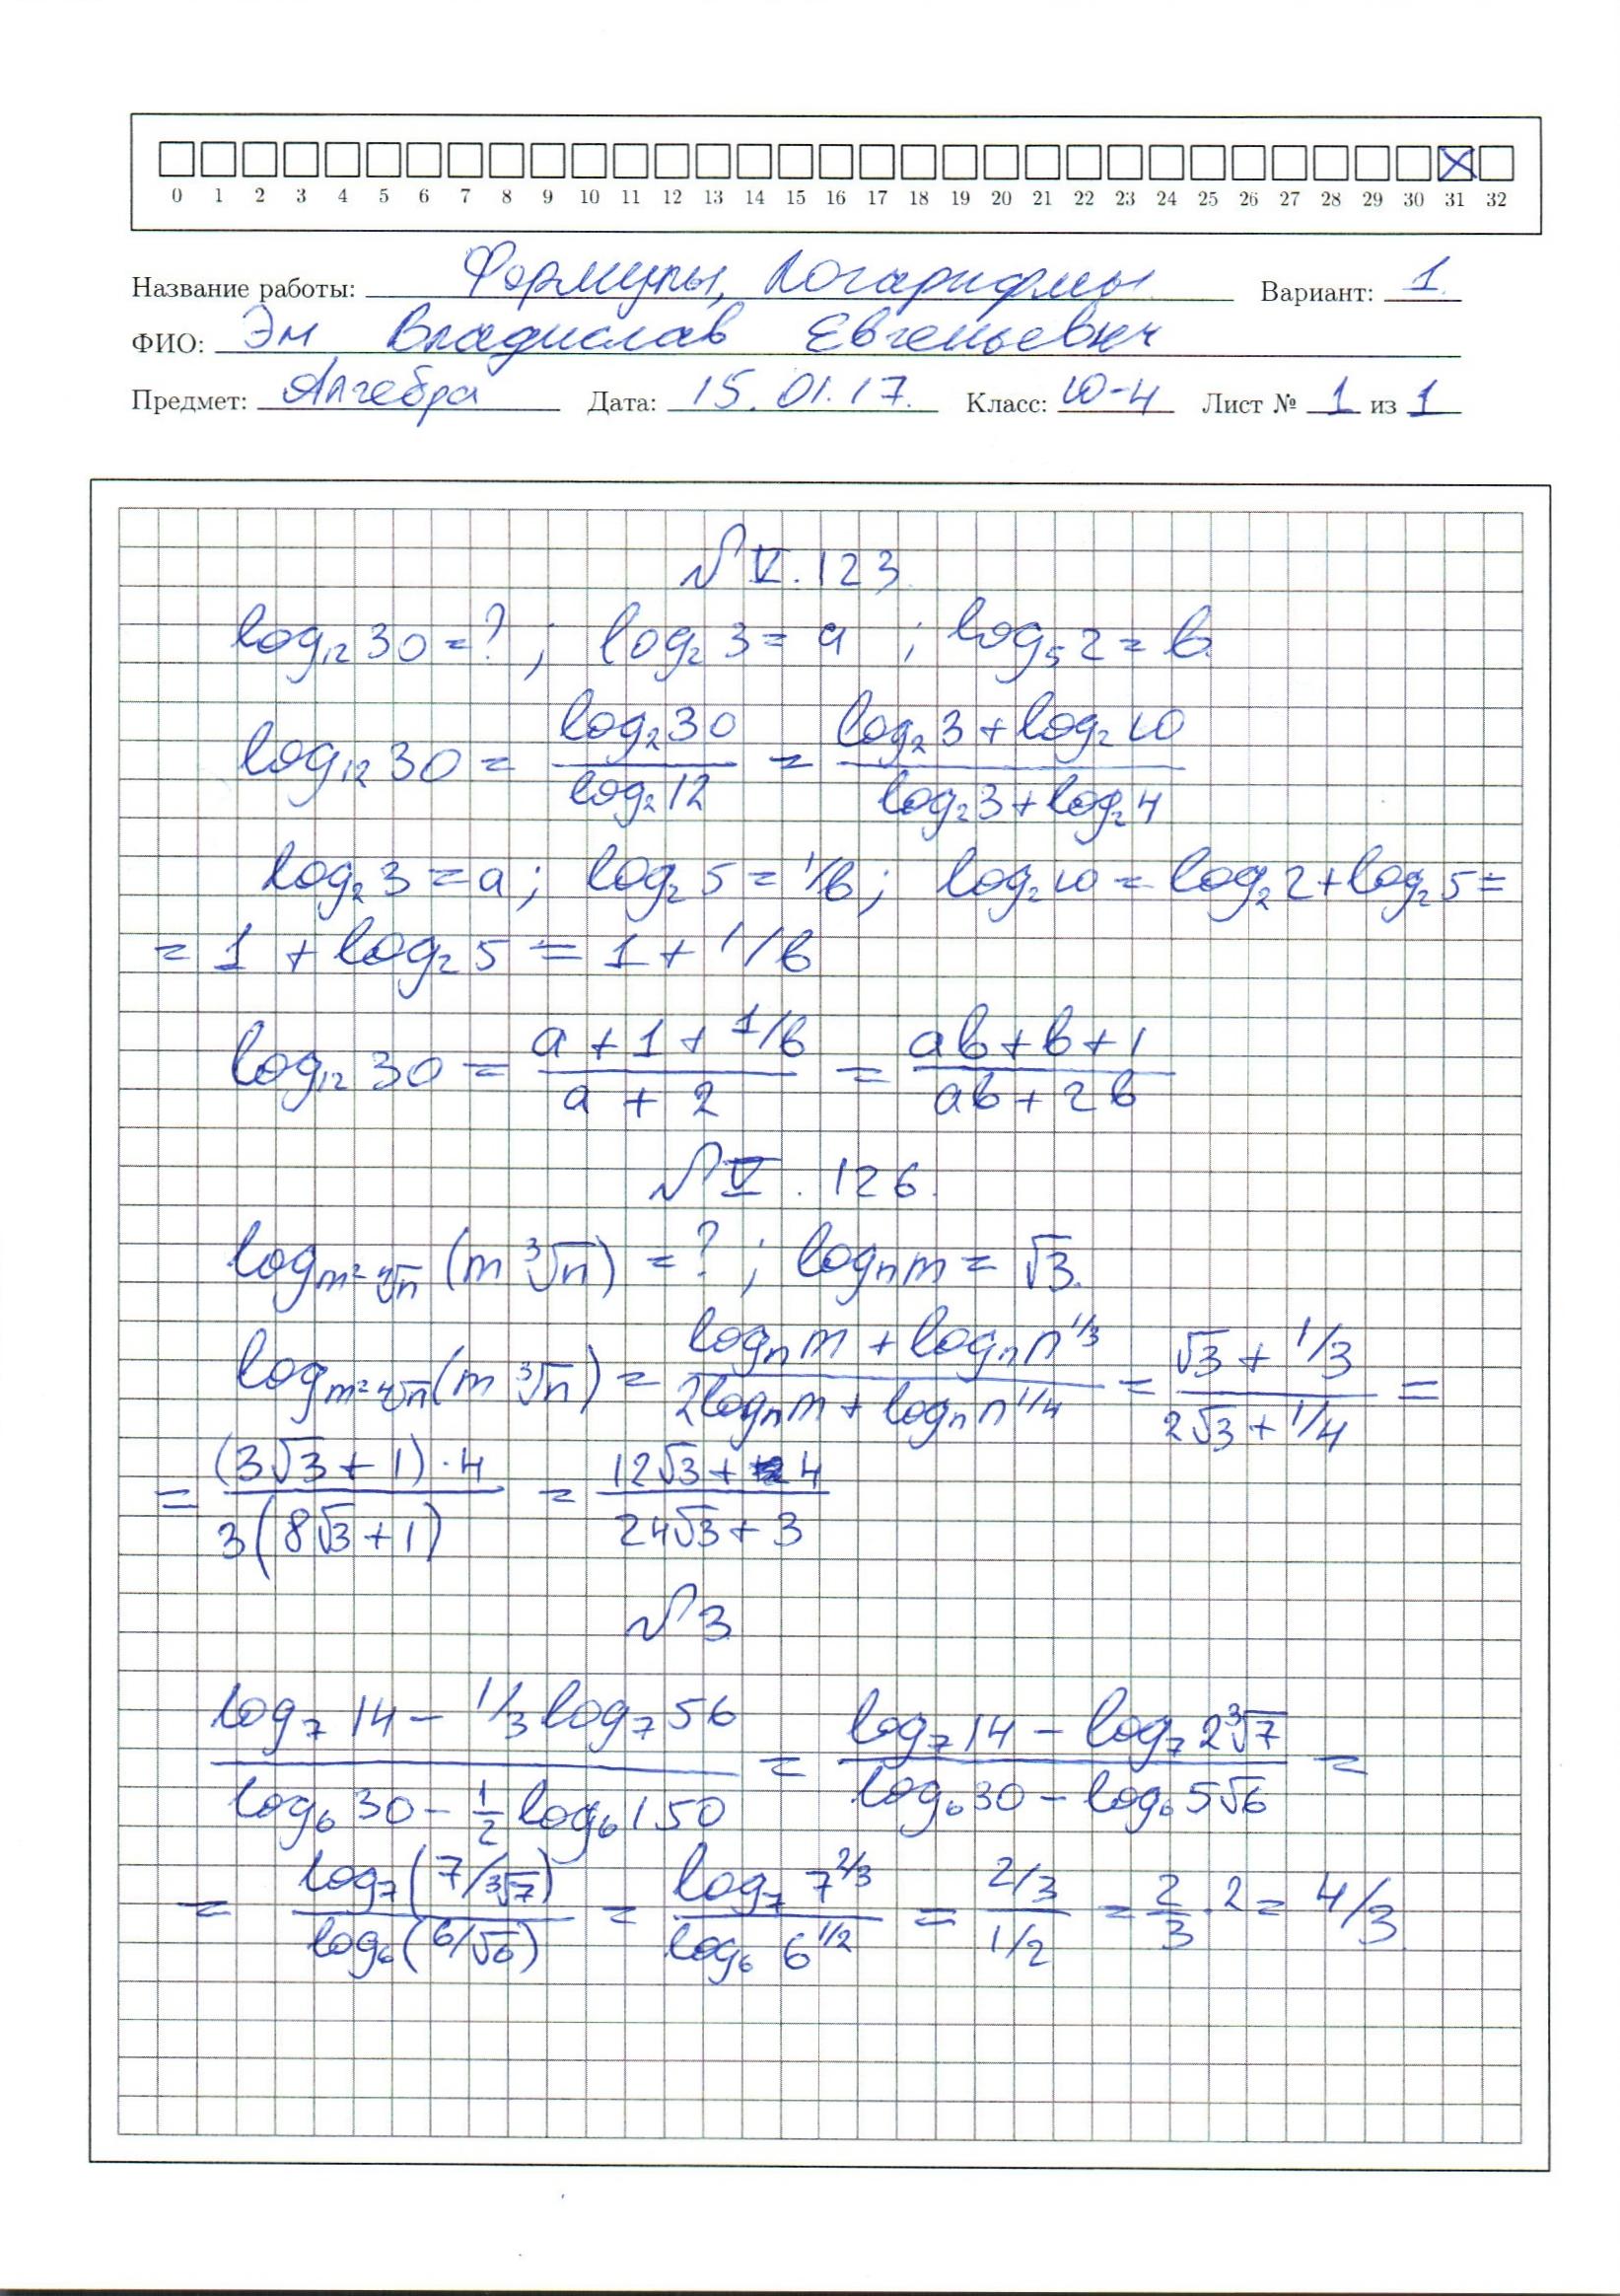 0 1 2 3 4 5 6 7 8 9 10 11 12 13 14 15 16 17 18 19 20 21 22 23 24 25 26 27 28 29 30 31 32
Название работы: Формулы, Логарифмы Вариант: 1.
ФИО: Эм Владислав Евгеньевич
Предмет: Алгебра Дата: 15.01.17. Класс: 10-4 Лист № 1 из 1
№ V.123.
log₁₂ 30 = ? ; log₂ 3 = a ; log₅ 2 = b.
log₁₂ 30 = (log₂ 30)/(log₂ 12) = (log₂ 3 + log₂ 10)/(log₂ 3 + log₂ 4)
log₂ 3 = a ; log₂ 5 = 1/b ; log₂ 10 = log₂ 2 + log₂ 5 =
= 1 + log₂ 5 = 1 + 1/b
log₁₂ 30 = (a + 1 + 1/b)/(a + 2) = (ab + b + 1)/(ab + 2b)
№ V.126.
log_{m² ⁴√n} (m ³√n) = ? ; logₙ m = √3.
log_{m² ⁴√n} (m ³√n) = (logₙ m + logₙ n^{1/3})/(2logₙ m + logₙ n^{1/4}) = (√3 + 1/3)/(2√3 + 1/4) =
= ((3√3 + 1) · 4)/(3(8√3 + 1)) = (12√3 + 4)/(24√3 + 3)
№ 3
(log₇ 14 − 1/3 log₇ 56)/(log₆ 30 − 1/2 log₆ 150) = (log₇ 14 − log₇ 2³√7)/(log₆ 30 − log₆ 5√6) =
= (log₇ (7/³√7))/(log₆ (6/√6)) = (log₇ 7^{2/3})/(log₆ 6^{1/2}) = (2/3)/(1/2) = 2/3 · 2 = 4/3